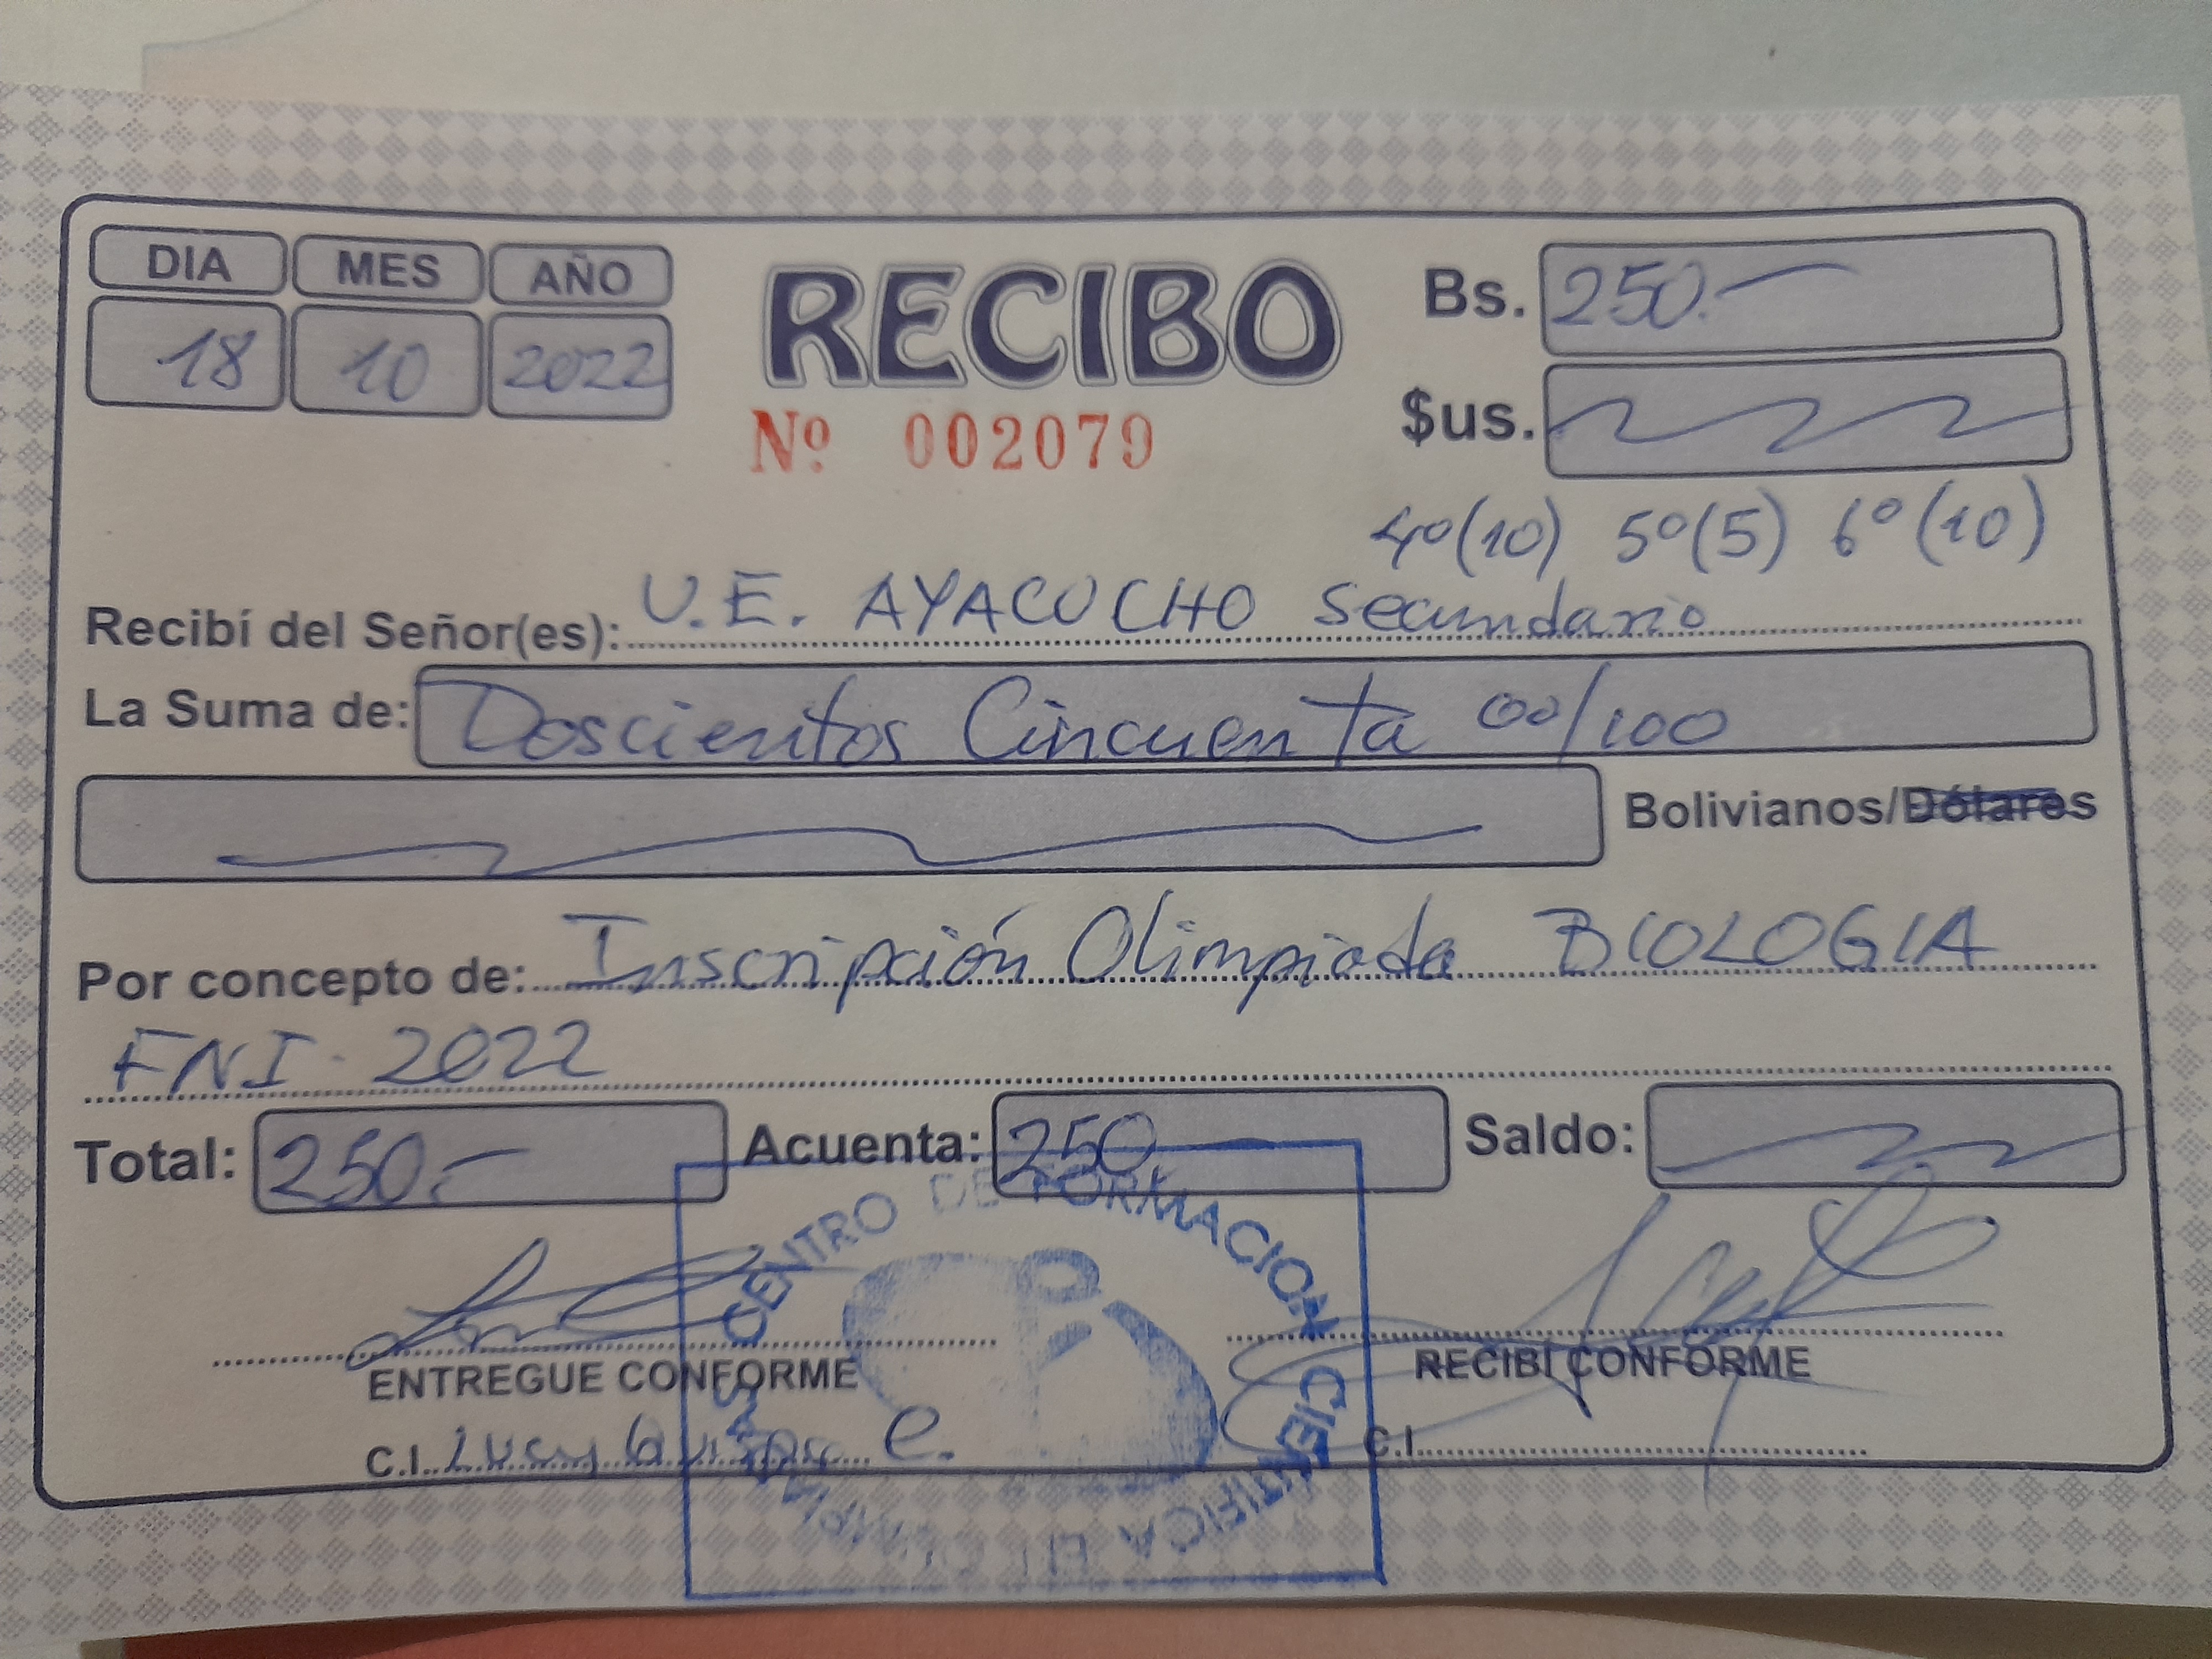 DIA MES AÑO
18 10 2022
RECIBO
Nº 002079
Bs. 250.-
$us.
4º(10) 5º(5) 6º(10)
Recibí del Señor(es): U.E. AYACUCHO secundario
La Suma de: Doscientos Cincuenta 00/100
Bolivianos/Dólares
Por concepto de: Inscripción Olimpiada BIOLOGIA
FNI - 2022
Total: 250.- Acuenta: 250 Saldo:
ENTREGUE CONFORME RECIBI CONFORME
C.I. C.I.
CENTRO DE FORMACIÓN CIENTIFICA